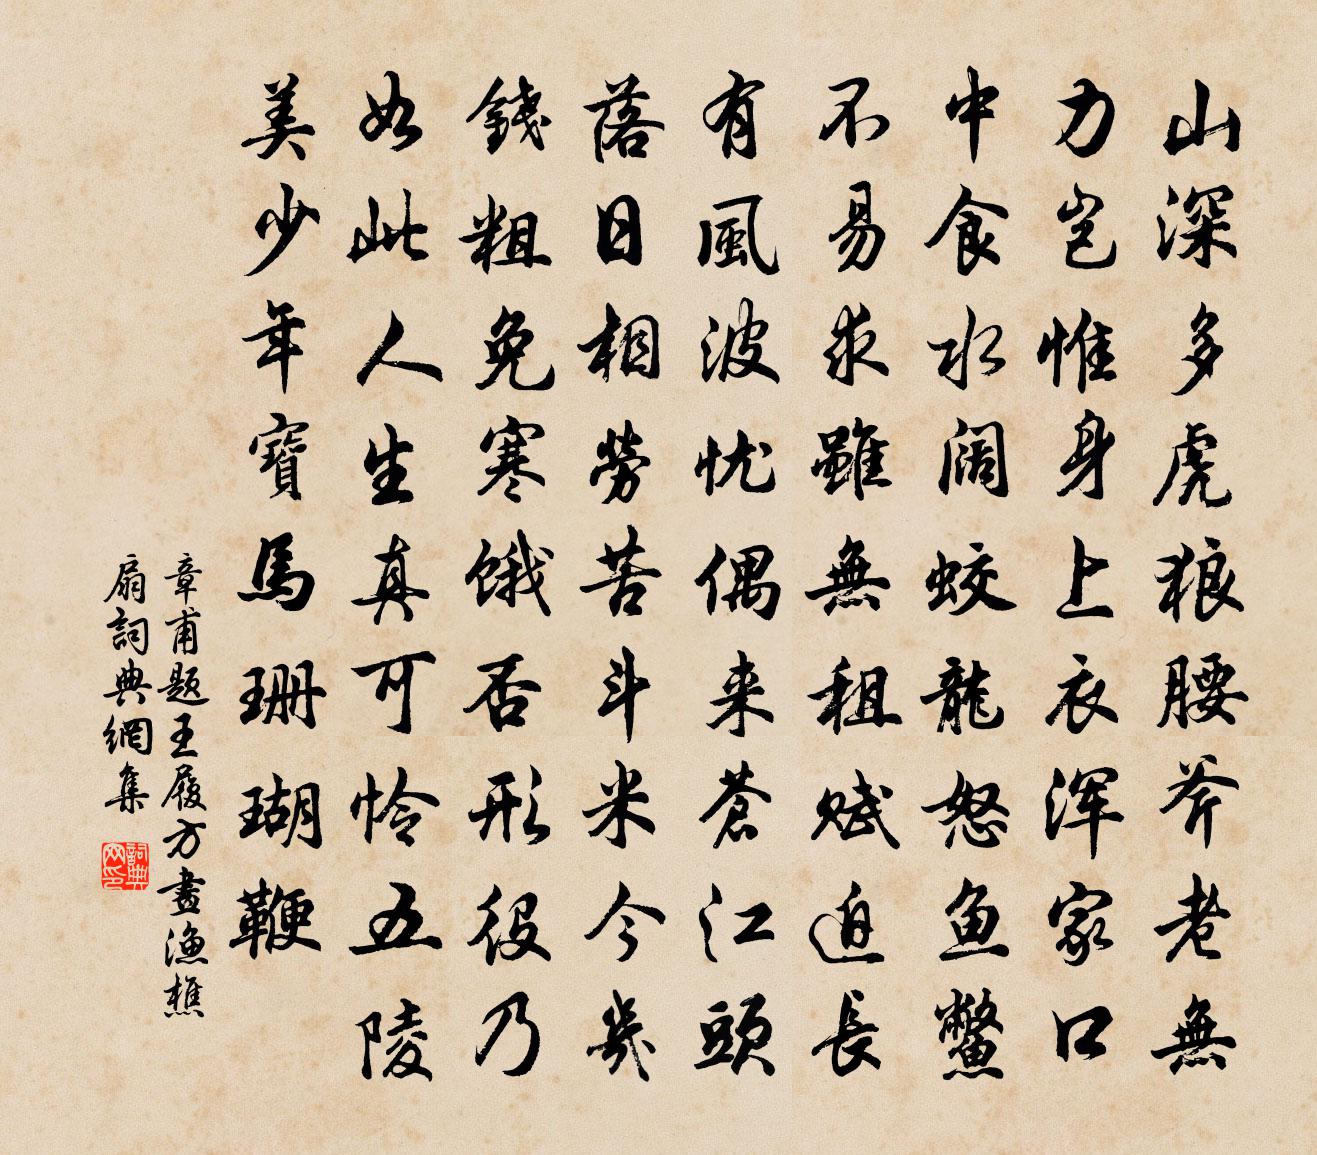 山深多虎狼腰斧老無
力豈惟身上衣渾家口
中食水闊蛟龍怒魚鱉
不易求雖無租賦迫長
有風波憂偶來蒼江頭
落日相勞苦斗米今幾
錢粗免寒餓否形役乃
如此人生真可憐五陵
美少年寶馬珊瑚鞭
章甫題王履方畫漁樵
扇詞典網集
詞典網印